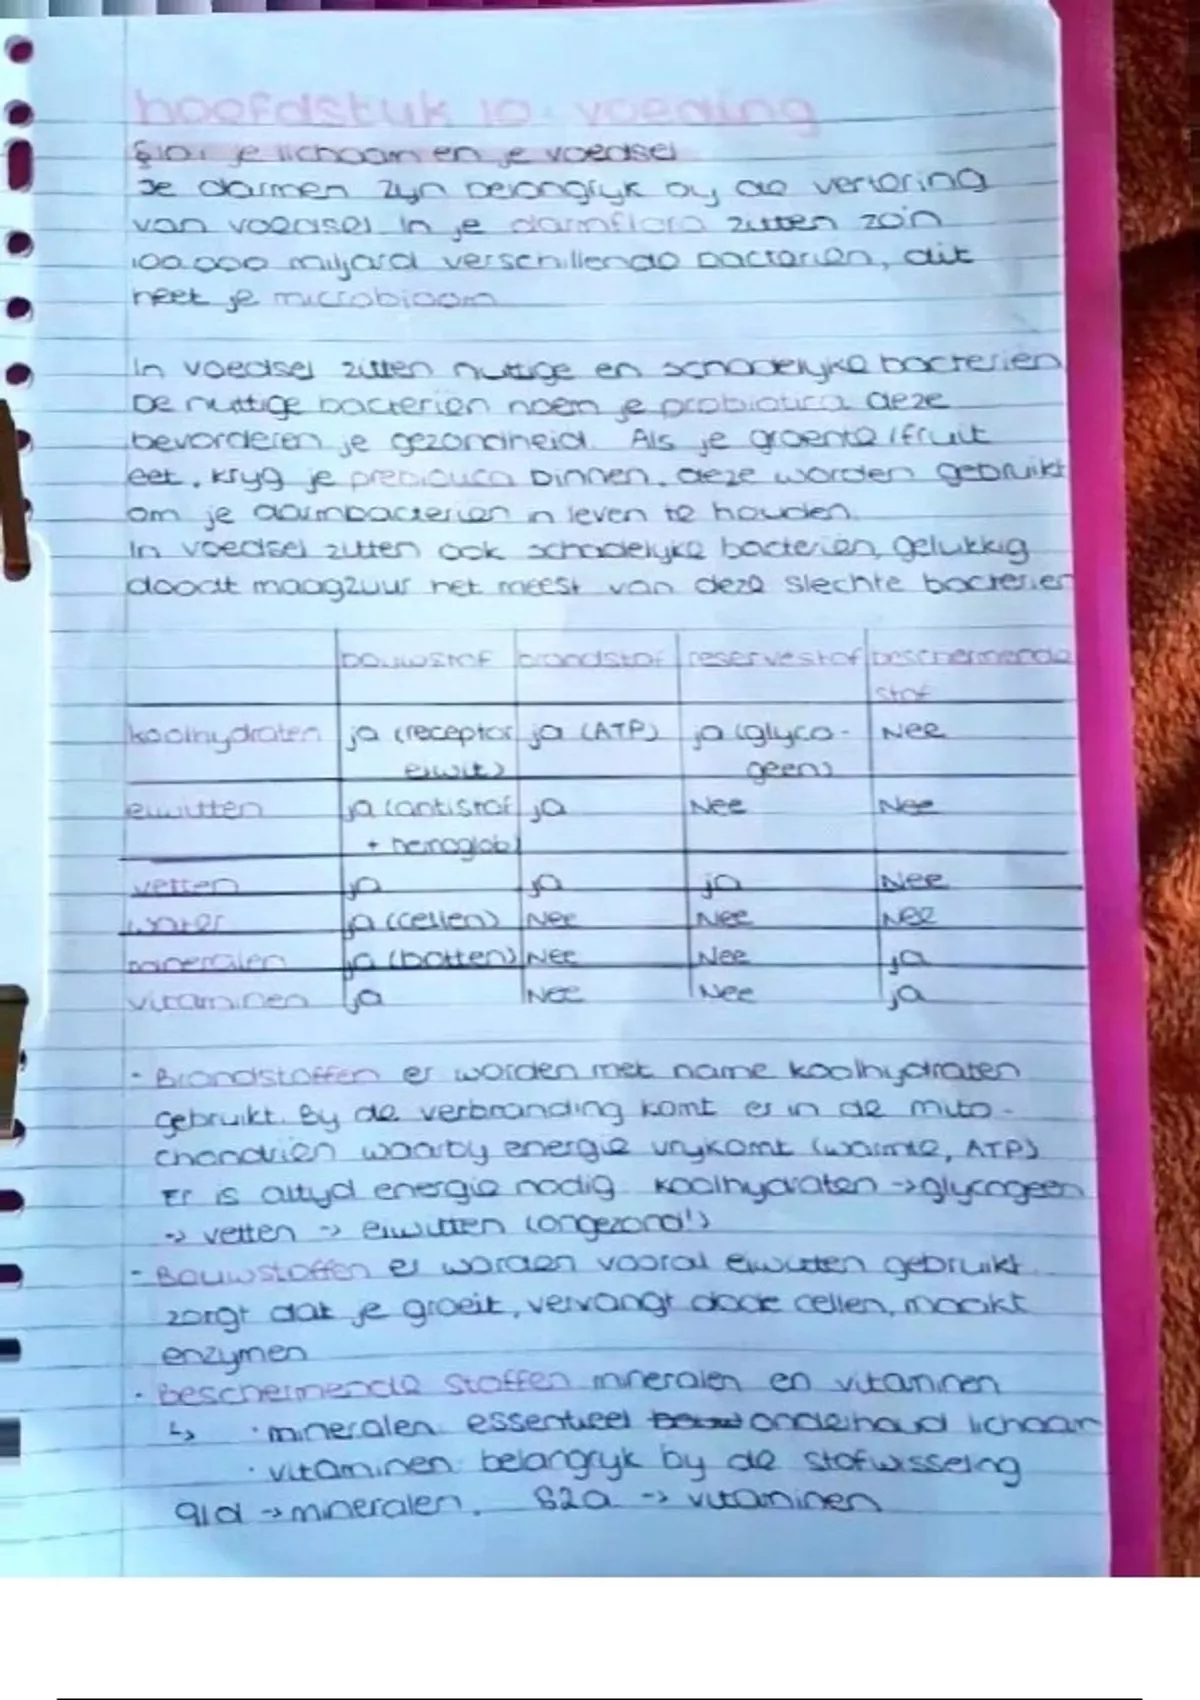 hoofdstuk 10. voeding
§10.1 je lichaam en je voedsel
Je darmen zijn belangrijk bij de vertering
van voedsel in je darmflora zitten zo'n
100.000 miljard verschillende bacteriën, dit
heet je microbioom
In voedsel zitten nuttige en schadelijke bacteriën
De nuttige bacteriën noem je probiotica deze
bevorderen je gezondheid. Als je groente/fruit
eet, krijg je prebiotica binnen, deze worden gebruikt
om je darmbacteriën in leven te houden.
In voedsel zitten ook schadelijke bacteriën, gelukkig
doodt maagzuur het meest van deze slechte bacteriën
bouwstof brandstof reservestof beschermende
stof
koolhydraten ja (receptor ja (ATP) ja (glyco- Nee
eiwit) geen)
eiwitten ja (antistof ja Nee Nee
+ hemoglob)
vetten ja ja ja Nee
water ja (cellen) Nee Nee Nee
mineralen ja (botten) Nee Nee ja
vitaminen ja Nee Nee ja
- Brandstoffen er worden met name koolhydraten
gebruikt. Bij de verbranding komt er in de mito-
chondriën waarbij energie vrijkomt (warmte, ATP)
Er is altijd energie nodig koolhydraten → glycogeen
→ vetten → eiwitten (ongezond!)
- Bouwstoffen er worden vooral eiwitten gebruikt
zorgt dat je groeit, vervangt dode cellen, maakt
enzymen
· beschermende stoffen mineralen en vitaminen
↳ · mineralen: essentieel onderhoud lichaam
· vitaminen: belangrijk bij de stofwisseling
91d → mineralen. 82a → vitaminen